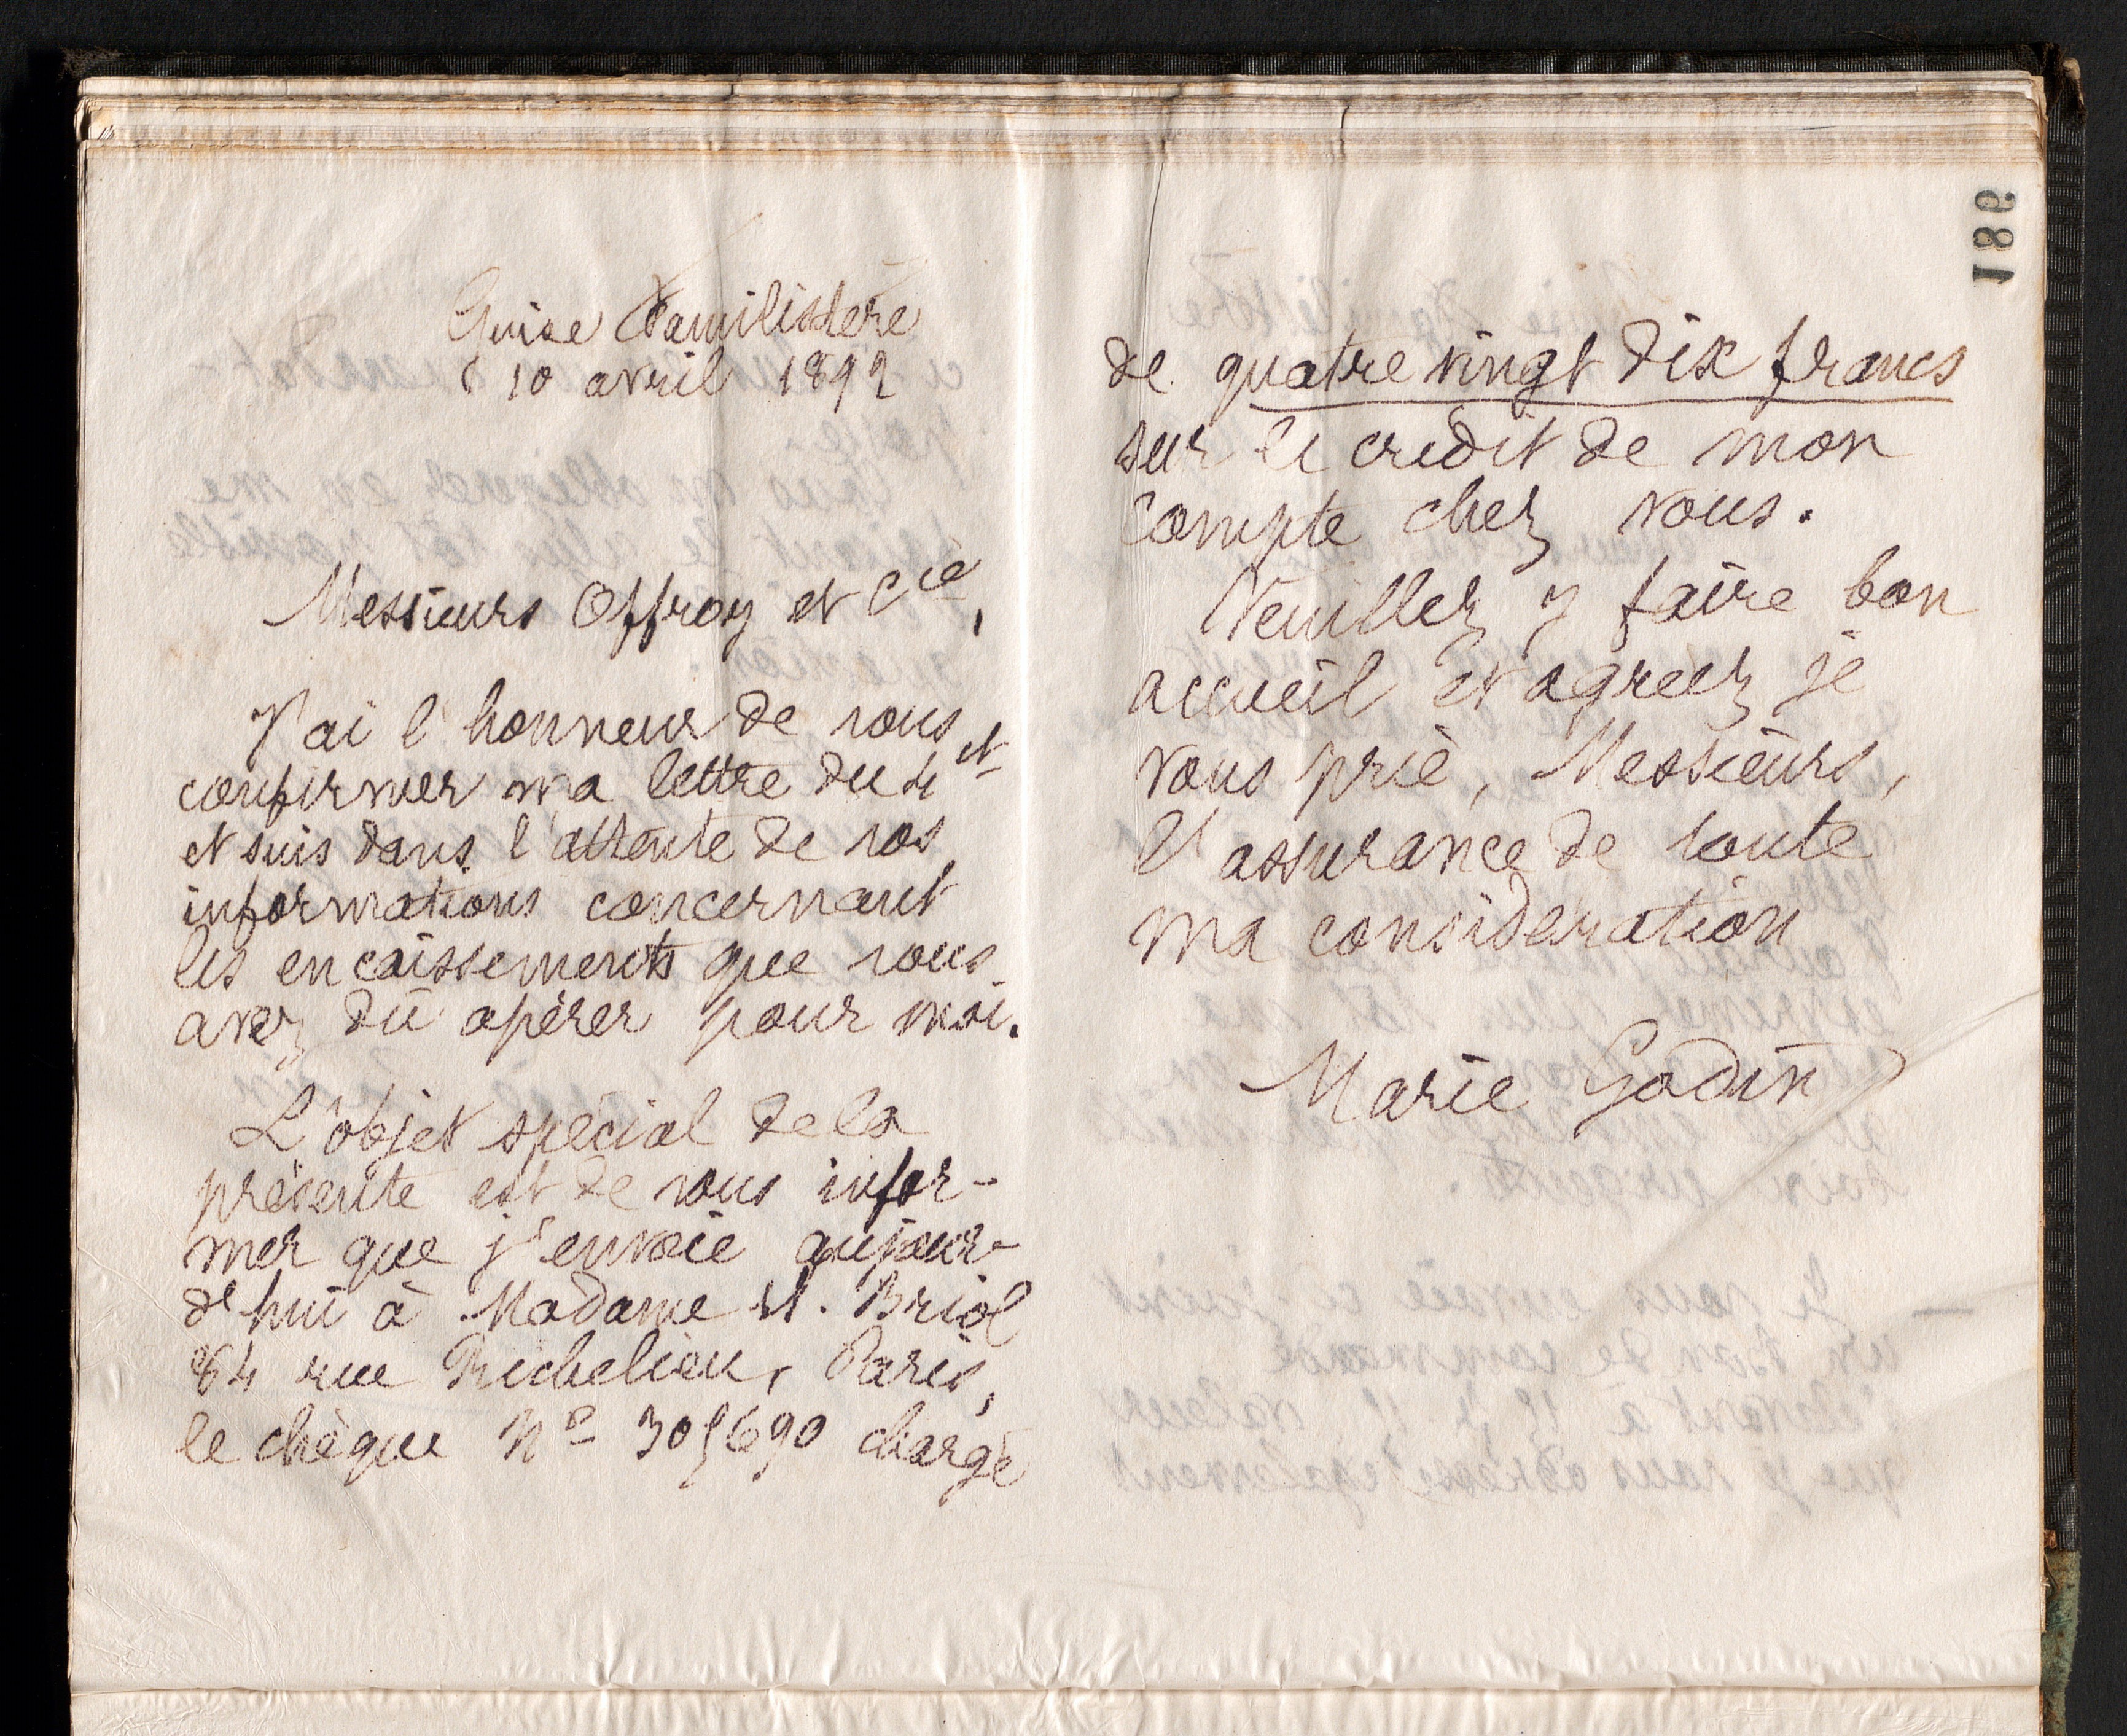 Guise Familistère
10 avril 1892
Messieurs Offroy et Cie,
J'ai l'honneur de vous
confirmer ma lettre du 4 ct
et suis dans l'attente de vos
informations concernant
les encaissements que vous
avez dû opérer pour moi.
L'objet spécial de la
présente est de vous infor-
mer que j'envoie aujour-
d'hui à Madame St. Briol
64 rue Richelieu, Paris,
le chèque No 305690 chargé
186
de quatre vingt dix francs
sur le crédit de mon
compte chez vous.
Veuillez y faire bon
accueil et agréez je
vous prie, Messieurs,
l'assurance de toute
ma considération
Marie Godin